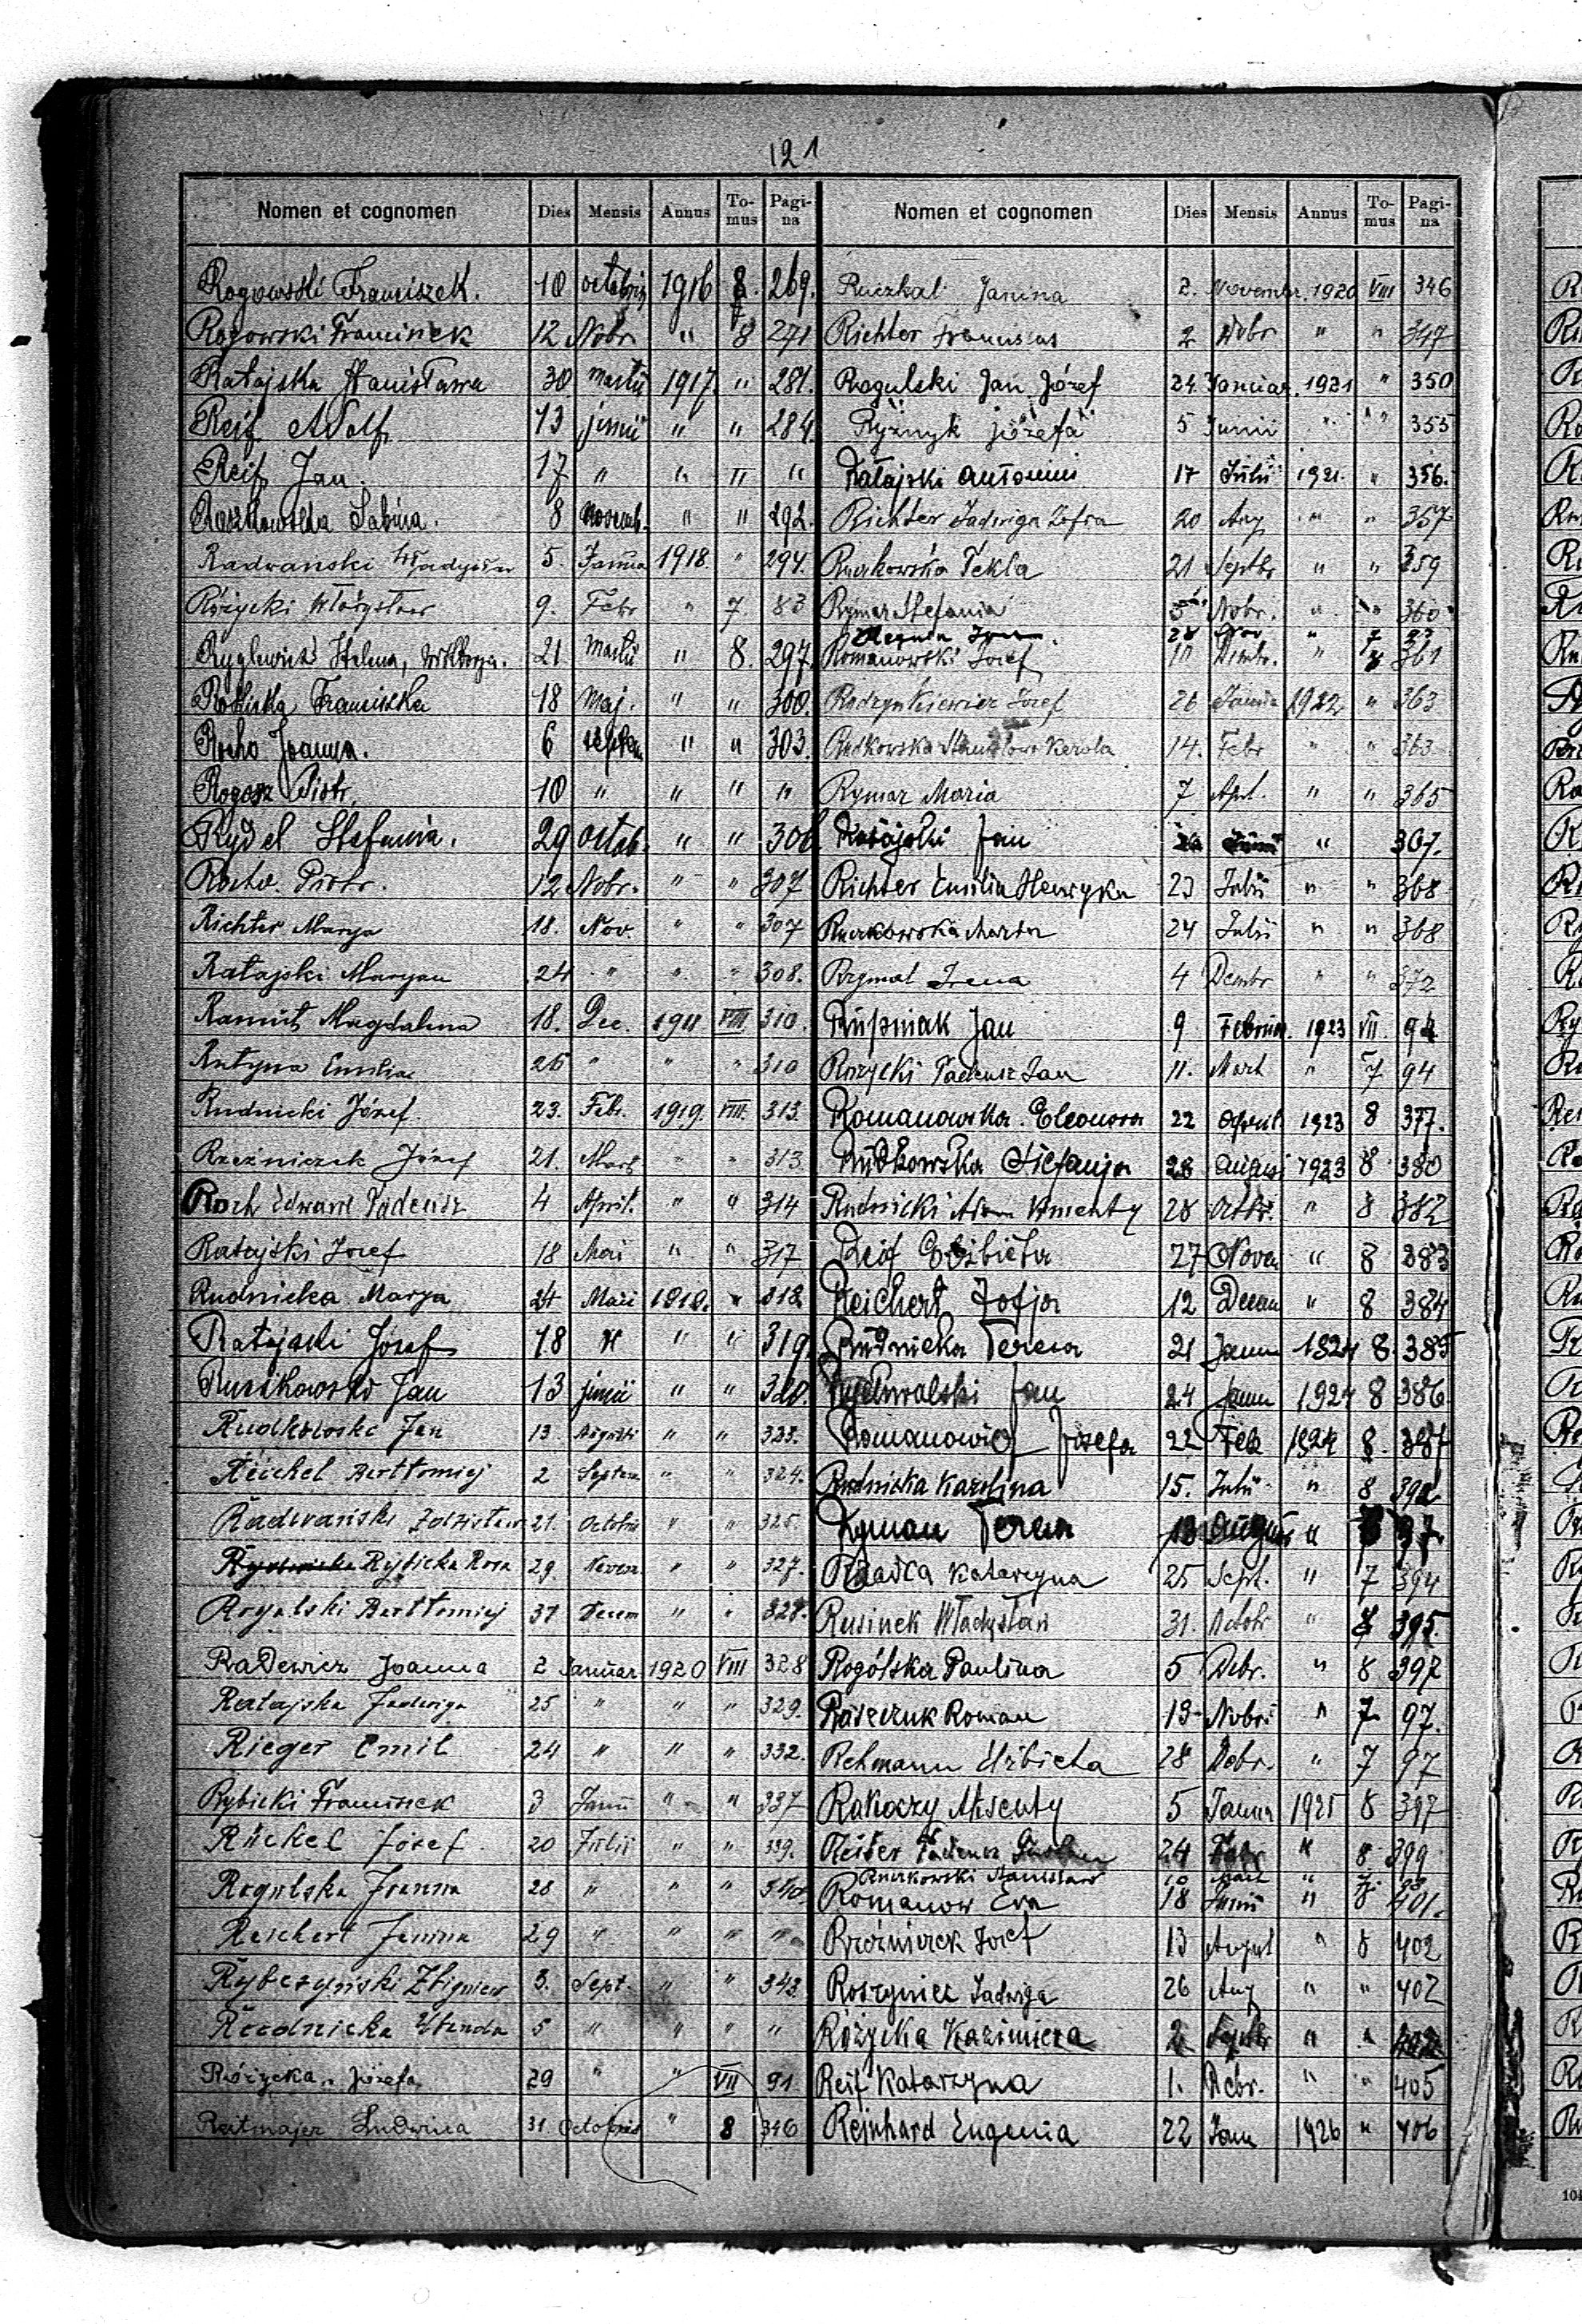 121
Nomen et cognomen Dies Mensis Annus To-mus Pagi-na
Rogowski Franciszek. 10 octobris 1916 8. 269.
Rogowski Franciszek 12 Nobr. " 8 271
Ratajska Stanisława 30 martii 1917. " 281.
Reif Adolf 13 junii " " 284.
Reif Jan. 17 " " " "
Sabina. 8 novemb. " " 292.
Radwański Władysław 5. Janua 1918. " 294.
Różycki Władysław 9. Febr " 7. 83
Ryglewicz Helena, Wiktorja. 21 martii " 8. 297.
Franciszka 18 Maj. " " 300.
Rocho Joanna. 6 septem " " 303.
Rogosz Piotr. 10 " " " "
Rydel Stefania. 29 octob. " " 306
Rocho Piotr. 12 Nobr. " " 307
Richter Marya 18. Nov. " " 307
Ratajski Maryan 24 " " " 308.
Magdalena 18. Dec. 1918 VIII. 310.
Rutyna Emilia 26 " " " 310
Rudnicki Józef. 23. Febr. 1919. VIII. 313.
Rzeźniczek Józef 21. Mart " " 313
Roch Edward Tadeusz 4 April. " " 314
Ratajski Józef 18 Maii " " 317
Rudnicka Marya 24 Maii 1919. " 318
Ratajski Józef 18 " " " 319.
Jan 13 junii " " 320.
Jan 13 Augusti " " 323.
Bartłomiej 2 Septem " " 324.
Radwański Zdzisław 21. Octobris " " 325.
Rybicka Roza 29. Novem. " " 327.
Rogalski Bartłomiej 31 Decem " " 328.
Radewicz Joanna 2 Januar 1920 VIII 328
Ratajska Jadwiga 25 " " " 329.
Rieger Emil 24 " " " 332.
Rybicki Franciszek 3 Junii " " 337
Rückel Józef 20 Julii " " 339.
Rogulska Joanna 28 " " " 340
Reichert Janina 29 " " " "
Rybczyński Zbigniew 3. Sept. " " 343.
Rudnicka Wanda 5 " " " "
Różycka Józefa 29 " " VII 91
Reitmajer Ludwika 31 Octobris " 8 346
Nomen et cognomen Dies Mensis Annus To-mus Pagi-na
Ruczkal Janina 2. Novembr. 1920 VIII 346
Richter Franciscus 2 Nobr " " 347
Rogulski Jan Józef 24. Januar. 1921 " 350
Ryżnyk Józefa 5 Junii " " 355
Ratajski Antonius 17 Julii 1921. " 356.
Richter Jadwiga Zofia 20 Aug " " 357
Ruczkowska Tekla 21 Septbr " " 359
Rymar Stefania 5 Nobr. " " 360
28 Nov " 7
Romanowski Józef 10 Dcmbr. " 361
Józef 26 Janua 1922 " 363
Rutkowska Stanisława Karola 14. Febr " " 363
Rymar Maria 7 Apl. " " 365
Ratajski Jan " 367.
Richter Emilia Henryka 23 Julii " " 368
Ruczkowska Marta 24 Julii " " 368
Irena 4 Dcmbr " " 372
Rupniak Jan 9 Februar. 1923 VII. 94
Różycki Tadeusz Jan 11. Mart " 7 94
Romanowska Eleonora 22 April 1923 8 377.
Rudkowska Stefanja 28 August 1923 8 380
Rudnicki Adam Wincenty 28 Octbr. " 8 382
Reif Elżbieta 27 Novem " 8 383
Reichert Zofja 12 Decem " 8 384
Rudnicka Teresa 21 Janu 1924 8. 385
Jan 24 Janu 1924 8 386
Romanowicz Józefa 22 Feb 1924 8. 387
Rudnicka Karolina 15. Julii " 8 392
Teresa August " 97.
Katarzyna 25 Sept. " 7 394
Rusinek Władysław 31. Octobr " 8 395.
Rogólska Paulina 5 Dcbr. " 8 397
Roman 13 Nobri " 7. 97.
Rehmann Elżbieta 28 Dcbr. " 7 97
Rakoczy 5 Janua 1925 8 397
Reiter Tadeusz 24 Febr " 8 399
Ruczkowski Stanisław 10 April " 7
Romanow Eva 18 Junii " 8 401.
Rzeźniczek Józef 13 August " 8 402
Jadwiga 26 Aug " " 402
Różycka Kazimiera 2 Septbr " "
Reif Katarzyna 1. Dcbr. " " 405
Rejnhard Eugenia 22 Janu 1926 " 406